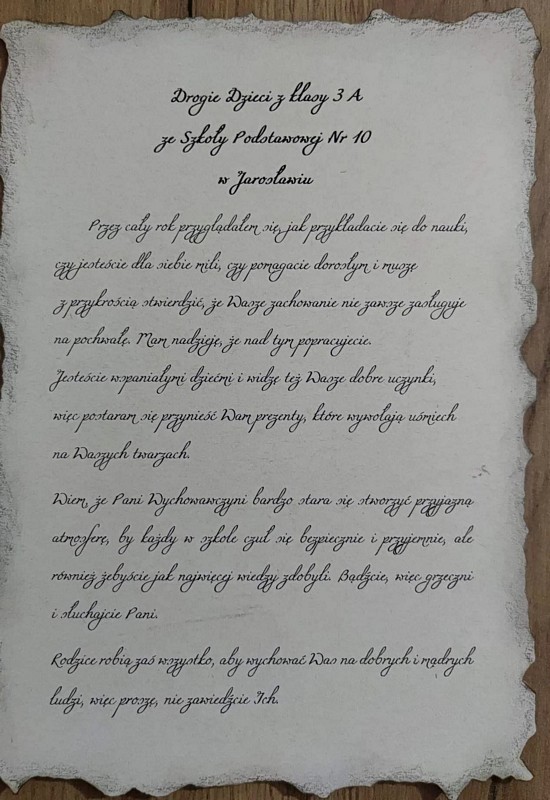 Drogie Dzieci z klasy 3 A
ze Szkoły Podstawowej Nr 10
w Jarosławiu
Przez cały rok przyglądałem się, jak przykładacie się do nauki,
czy jesteście dla siebie mili, czy pomagacie dorosłym i muszę
z przykrością stwierdzić, że Wasze zachowanie nie zawsze zasługuje
na pochwałę. Mam nadzieję, że nad tym popracujecie.
Jesteście wspaniałymi dziećmi i widzę też Wasze dobre uczynki,
więc postaram się przynieść Wam prezenty, które wywołają uśmiech
na Waszych twarzach.
Wiem, że Pani Wychowawczyni bardzo stara się stworzyć przyjazną
atmosferę, by każdy w szkole czuł się bezpiecznie i przyjemnie, ale
również żebyście jak najwięcej wiedzy zdobyli. Bądźcie, więc grzeczni
i słuchajcie Pani.
Rodzice robią zaś wszystko, aby wychować Was na dobrych i mądrych
ludzi, więc proszę, nie zawiedźcie Ich.